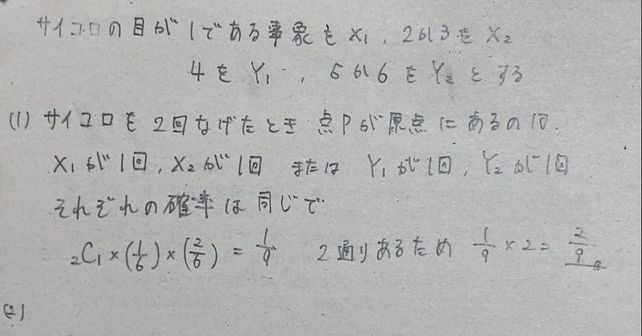 サイコロの目が1である事象をX₁, 2か3をX₂
4をY₁, 5か6をY₂とする
(1) サイコロを2回なげたとき点Pが原点にあるのは.
X₁が1回, X₂が1回 または Y₁が1回, Y₂が1回
それぞれの確率は同じで
₂C₁×(1/6)×(2/6) = 1/9 2通りあるため 1/9×2 = 2/9
(2)